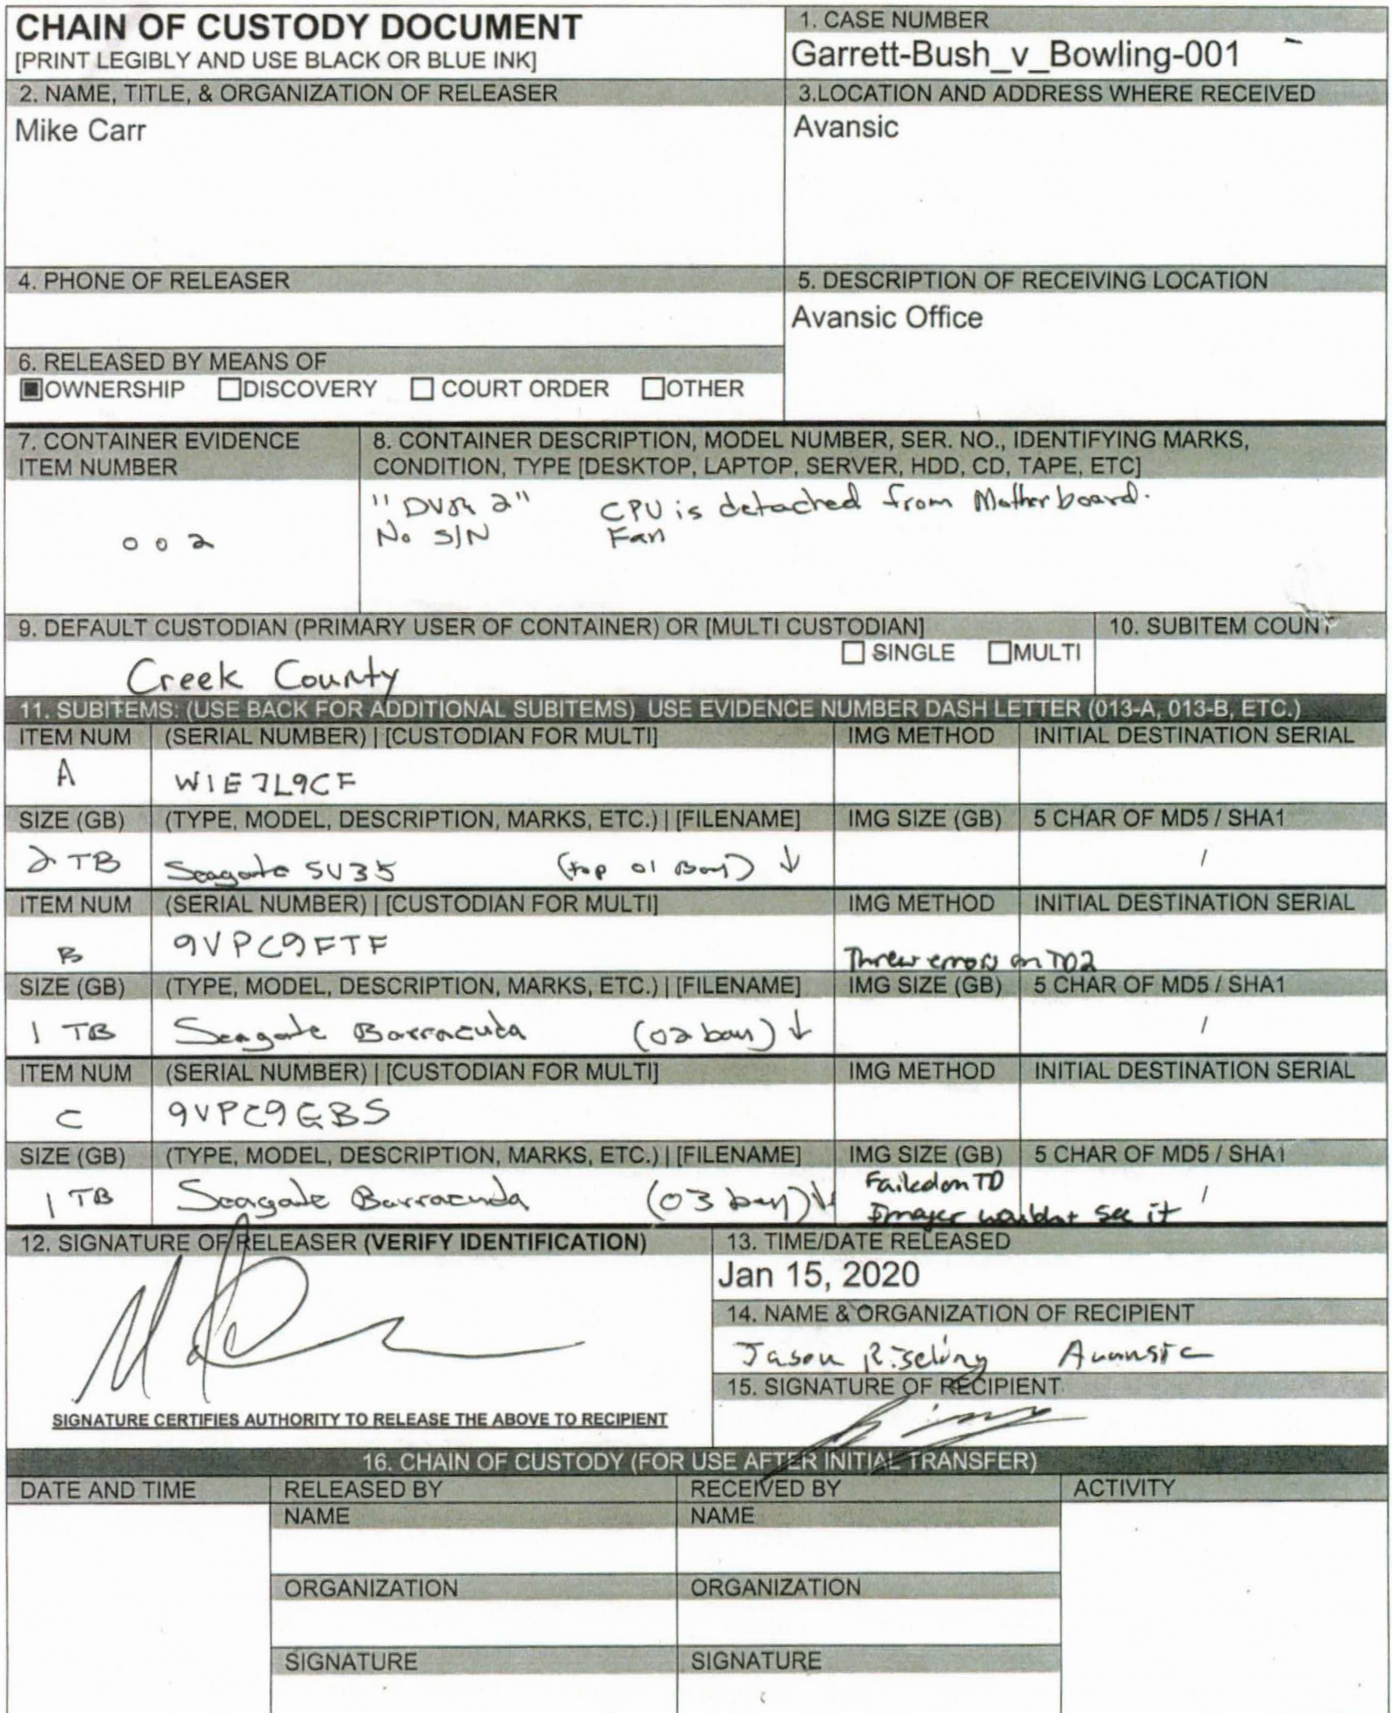 CHAIN OF CUSTODY DOCUMENT
[PRINT LEGIBLY AND USE BLACK OR BLUE INK]
1. CASE NUMBER
Garrett-Bush_v_Bowling-001
2. NAME, TITLE, & ORGANIZATION OF RELEASER
Mike Carr
3.LOCATION AND ADDRESS WHERE RECEIVED
Avansic
4. PHONE OF RELEASER
5. DESCRIPTION OF RECEIVING LOCATION
Avansic Office
6. RELEASED BY MEANS OF
OWNERSHIP DISCOVERY COURT ORDER OTHER
7. CONTAINER EVIDENCE
ITEM NUMBER
002
8. CONTAINER DESCRIPTION, MODEL NUMBER, SER. NO., IDENTIFYING MARKS,
CONDITION, TYPE [DESKTOP, LAPTOP, SERVER, HDD, CD, TAPE, ETC]
"DVR 2" CPU is detached from Motherboard.
No S/N Fan
9. DEFAULT CUSTODIAN (PRIMARY USER OF CONTAINER) OR [MULTI CUSTODIAN]
SINGLE MULTI
Creek County
10. SUBITEM COUNT
11. SUBITEMS: (USE BACK FOR ADDITIONAL SUBITEMS) USE EVIDENCE NUMBER DASH LETTER (013-A, 013-B, ETC.)
ITEM NUM (SERIAL NUMBER) | [CUSTODIAN FOR MULTI] IMG METHOD INITIAL DESTINATION SERIAL
A W1E7L9CF
SIZE (GB) (TYPE, MODEL, DESCRIPTION, MARKS, ETC.) | [FILENAME] IMG SIZE (GB) 5 CHAR OF MD5 / SHA1
2 TB Seagate SV35 (top 01 Bay) ↓ /
ITEM NUM (SERIAL NUMBER) | [CUSTODIAN FOR MULTI] IMG METHOD INITIAL DESTINATION SERIAL
B 9VPC9FTF Threw errors on TD2
SIZE (GB) (TYPE, MODEL, DESCRIPTION, MARKS, ETC.) | [FILENAME] IMG SIZE (GB) 5 CHAR OF MD5 / SHA1
1 TB Seagate Barracuda (02 bay) ↓ /
ITEM NUM (SERIAL NUMBER) | [CUSTODIAN FOR MULTI] IMG METHOD INITIAL DESTINATION SERIAL
C 9VPC9GBS
SIZE (GB) (TYPE, MODEL, DESCRIPTION, MARKS, ETC.) | [FILENAME] IMG SIZE (GB) 5 CHAR OF MD5 / SHA1
1 TB Seagate Barracuda (03 bay) ↓ Failed on TD /
Imager wouldnt see it
12. SIGNATURE OF RELEASER (VERIFY IDENTIFICATION)
SIGNATURE CERTIFIES AUTHORITY TO RELEASE THE ABOVE TO RECIPIENT
13. TIME/DATE RELEASED
Jan 15, 2020
14. NAME & ORGANIZATION OF RECIPIENT
Jason Riseling Avansic
15. SIGNATURE OF RECIPIENT
16. CHAIN OF CUSTODY (FOR USE AFTER INITIAL TRANSFER)
DATE AND TIME RELEASED BY RECEIVED BY ACTIVITY
NAME NAME
ORGANIZATION ORGANIZATION
SIGNATURE SIGNATURE